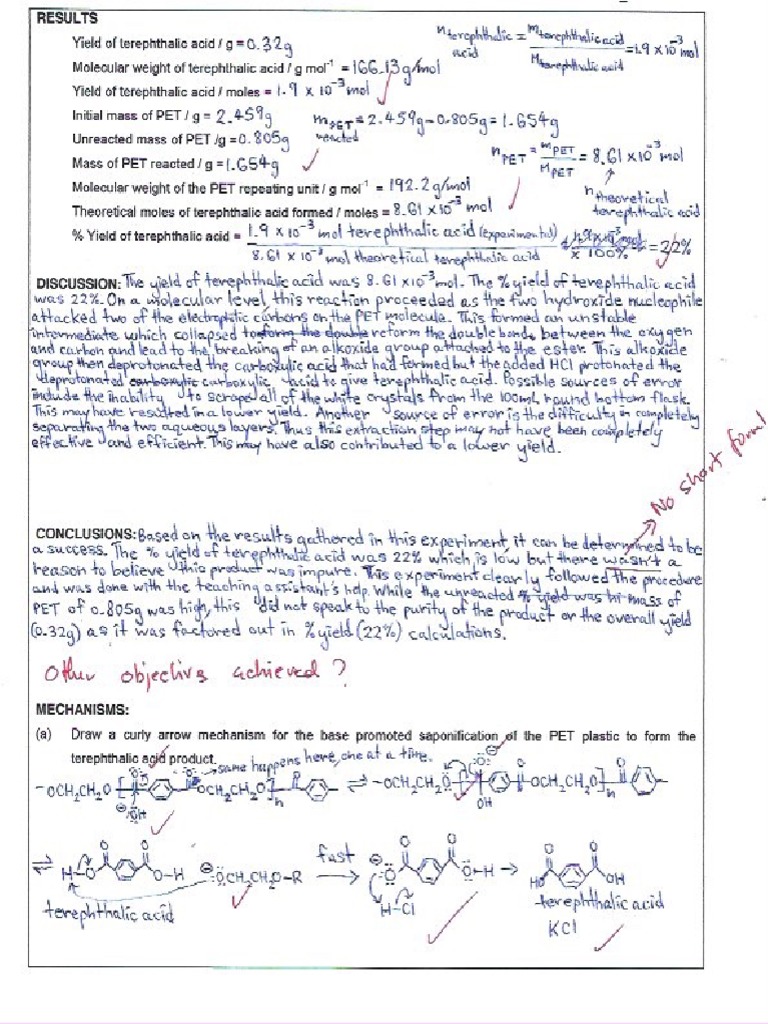 RESULTS
Yield of terephthalic acid / g = 0.32g
n terephthalic acid = m terephthalic acid / M terephthalic acid = 1.9 x 10⁻³ mol
Molecular weight of terephthalic acid / g mol⁻¹ = 166.13g/mol
Yield of terephthalic acid / moles = 1.9 x 10⁻³ mol
Initial mass of PET / g = 2.459g
m PET reacted = 2.459g-0.805g = 1.654g
Unreacted mass of PET /g = 0.805g
Mass of PET reacted / g = 1.654g
n PET = m PET / M PET = 8.61 x10⁻³ mol
Molecular weight of the PET repeating unit / g mol⁻¹ = 192.2g/mol
n theoretical terephthalic acid
Theoretical moles of terephthalic acid formed / moles = 8.61 x10⁻³ mol
% Yield of terephthalic acid = 1.9 x 10⁻³ mol terephthalic acid (experimental) / 8.61 x 10⁻³ mol theoretical terephthalic acid x 100% = 22%
DISCUSSION: The yield of terephthalic acid was 8.61 x10⁻³ mol. The % yield of terephthalic acid
was 22%. On a molecular level, this reaction proceeded as the two hydroxide nucleophile
attacked two of the electrophilic carbons on the PET molecule. This formed an unstable
intermediate which collapsed to form the double reform the double bonds between the oxygen
and carbon and lead to the breaking of an alkoxide group attached to the ester. This alkoxide
group then deprotonated the carboxylic acid that had formed but the added HCl protonated the
deprotonated carboxylic carboxylic acid to give terephthalic acid. Possible sources of error
include the inability to scrape all of the white crystals from the 100mL round bottom flask.
This may have resulted in a lower yield. Another source of error is the difficulty in completely
separating the two aqueous layers. Thus this extraction step may not have been completely
effective and efficient. This may have also contributed to a lower yield.
No short form!
CONCLUSIONS: Based on the results gathered in this experiment, it can be determined to be
a success. The % yield of terephthalic acid was 22% which is low but there wasn't a
reason to believe this product was impure. This experiment clearly followed the procedure
and was done with the teaching assistant's help. While the unreacted % yield was hi mass of
PET of 0.805g was high, this did not speak to the purity of the product or the overall yield
(0.32g) as it was factored out in % yield (22%) calculations.
Other objectives achieved?
MECHANISMS:
(a) Draw a curly arrow mechanism for the base promoted saponification of the PET plastic to form the
terephthalic acid product.
same happens here, one at a time.
-OCH₂CH₂O [ O O OCH₂CH₂O ]n O ⇌ -OCH₂CH₂O [ :O: O OCH₂CH₂O ]n O
⊖:OH OH
⇌ H-O O O O-H ⊖:OCH₂CH₂O-R fast → ⊖:O O O O-H → HO O O OH
H-Cl
terephthalic acid
terephthalic acid
KCl